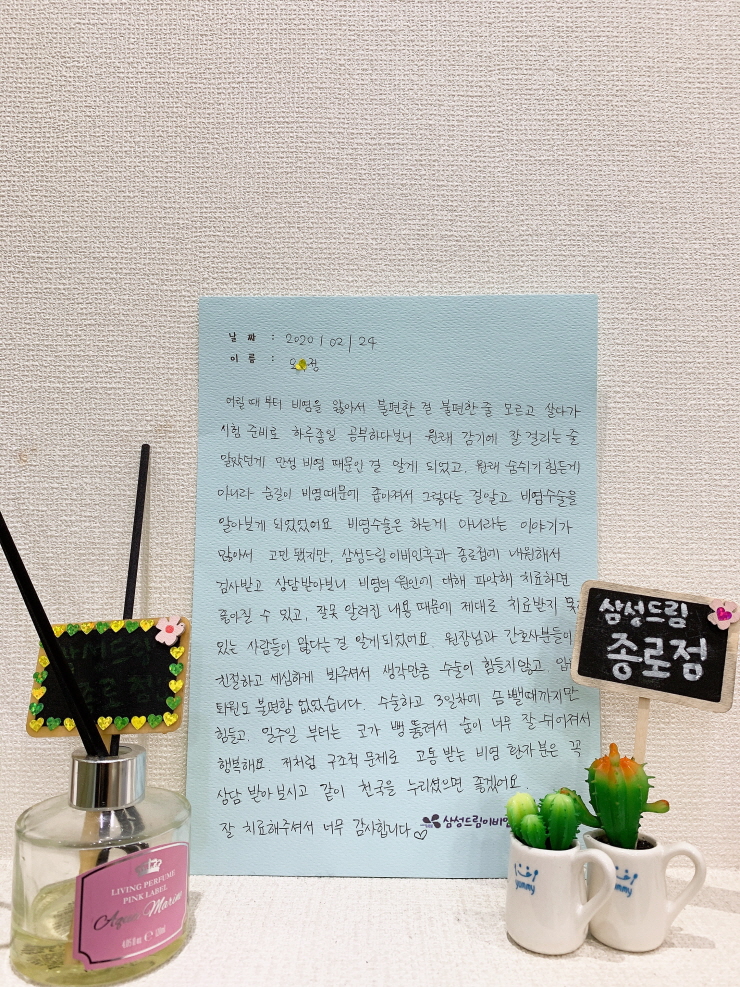 날 짜 : 2020 / 02 / 24
이 름 : 오 정
어릴 때 부터 비염을 앓아서 불편한 걸 불편한 줄 모르고 살다가
시험 준비로 하루종일 공부하다보니 원래 감기에 잘 걸리는 줄
알았던게 만성 비염 때문인 걸 알게 되었고, 원래 숨쉬기 힘든게
아니라 숨길이 비염때문에 좁아져서 그렇다는 걸알고 비염수술을
알아보게 되었었어요 비염수술은 하는게 아니라는 이야기가
많아서 고민 됐지만, 삼성드림 이비인후과 종로점에 내원해서
검사받고 상담받아보니 비염의 원인에 대해 파악해 치료하면
좋아질 수 있고, 잘못 알려진 내용 때문에 제대로 치료받지 못
있는 사람들이 많다는 걸 알게되었어요. 원장님과 간호사분들이
친절하고 세심하게 봐주셔서 생각만큼 수술이 힘들지않고
퇴원도 불편함 없었습니다. 수술하고 3일차에 솜뺄때까지만
힘들고, 일주일 부터는 코가 뻥 뚫려서 숨이 너무 잘 쉬어져서
행복해요. 저처럼 구조적 문제로 고통 받는 비염 환자분은 꼭
상담 받아보시고 같이 천국을 누리셨으면 좋겠어요.
잘 치료해주셔서 너무 감사합니다♡
삼성드림이비인
삼성드림
종로점
삼성드림
종로점
LIVING PERFUME
PINK LABEL
Aqua Marine
4.05 fl oz e 120ml
yummy
yummy